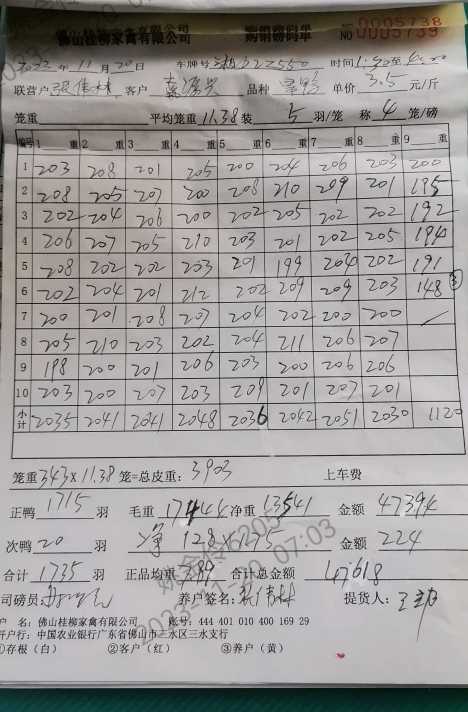 佛山桂柳家禽有限公司 购销磅码单 NO 0005738
0005739
2022年11月20日 车牌号 时间
联营户 张伟林 客户 品种 单价 3.5 元/斤
笼重 平均笼重 11.38 装 5 羽/笼 称 4 笼/磅
编号 1 重 2 重 3 重 4 重 5 重 6 重 7 重 8 重 9 重
1 203 208 201 205 200 204 206 203 200
2 208 205 207 200 208 210 209 201 195
3 202 204 206 200 202 205 202 202 192
4 206 207 205 210 203 201 202 205 194
5 208 202 202 203 201 199 204 202 191
6 202 204 201 212 202 209 209 203 148 ③
7 200 201 208 207 204 202 200 200 /
8 205 210 203 202 204 211 206 207
9 198 200 201 206 203 200 206 206
10 203 200 207 203 209 201 207 201
小计 2035 2041 2041 2048 2036 2042 2051 2030 1120
笼重 343×11.38 笼=总皮重: 3903 上车费
正鸭 1715 羽 毛重 17444 净重 13541 金额 47394
次鸭 20 羽 净 128×1.75 金额 224
合计 1735 羽 正品均重 7.89 合计总金额 47618
司磅员: 养户签名: 张伟林 提货人:
户 名: 佛山桂柳家禽有限公司 账号: 444 401 010 400 169 29
开户行: 中国农业银行广东省佛山市三水区三水支行
①存根(白) ②客户(红) ③养户(黄)
2022-11-20 07:03